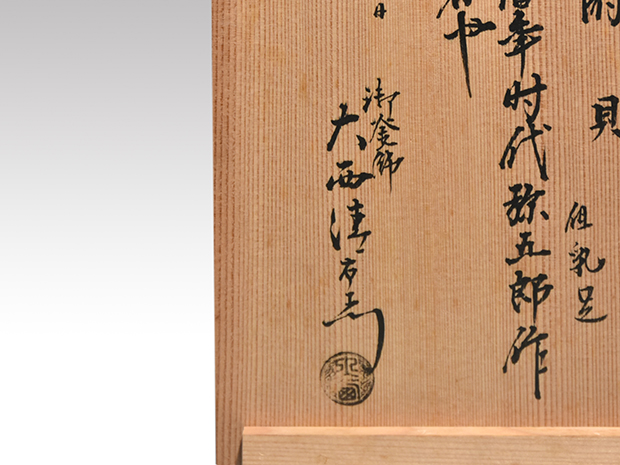 貝
但乳足
年时代弥五郎作
也
日
御釜師
大西清右衛門